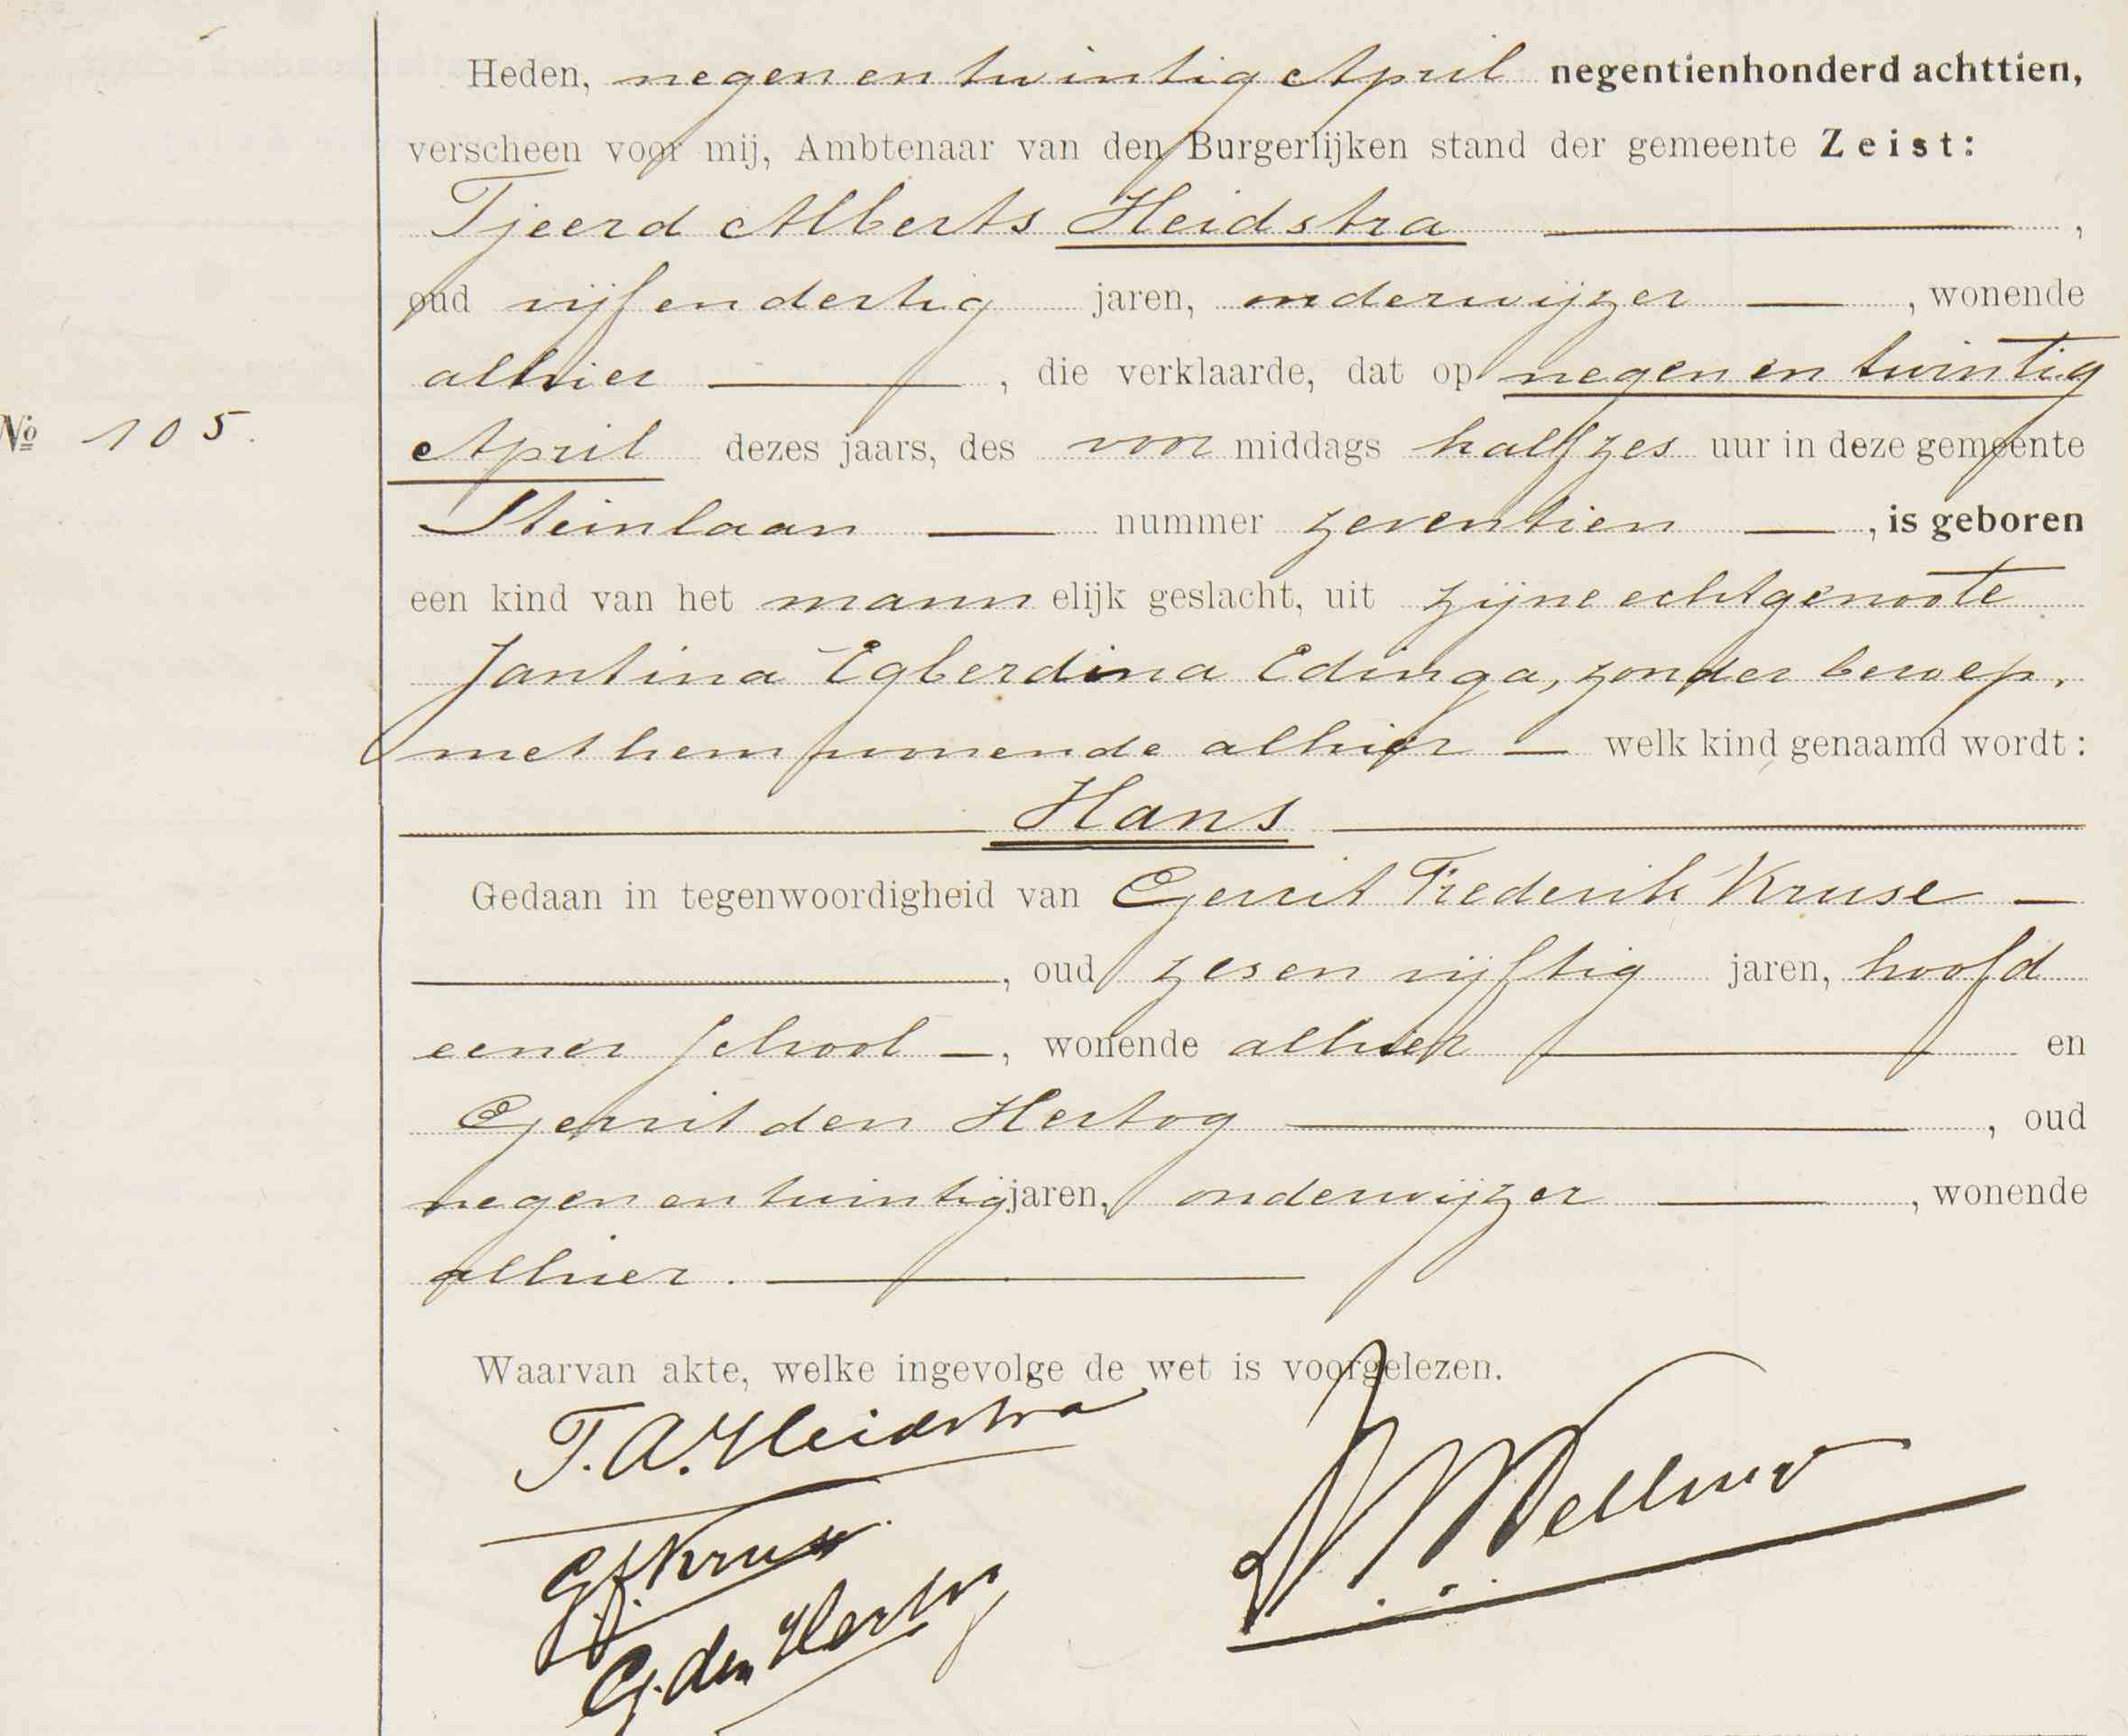 Heden, negen en twintig April negentienhonderd achttien,
verscheen voor mij, Ambtenaar van den Burgerlijken stand der gemeente Zeist:
Tjeerd Alberts Heidstra ,
oud vijf en dertig jaren, onderwijzer , wonende
alhier , die verklaarde, dat op negen en twintig
No 105.
April dezes jaars, des voor middags half zes uur in deze gemeente
Steinlaan nummer zeventien , is geboren
een kind van het mann elijk geslacht, uit zijne echtgenoote
Jantina Egberdina Edinga, zonder beroep,
met hem wonende alhier — welk kind genaamd wordt:
Hans
Gedaan in tegenwoordigheid van Gerrit Frederik Kruse —
, oud zes en vijftig jaren, hoofd
eener school —, wonende alhier en
Gerrit den Hertog , oud
negen en twintig jaren, onderwijzer , wonende
alhier.
Waarvan akte, welke ingevolge de wet is voorgelezen.
T. A. Heidstra
G.f. Kruse
G. den Hertog